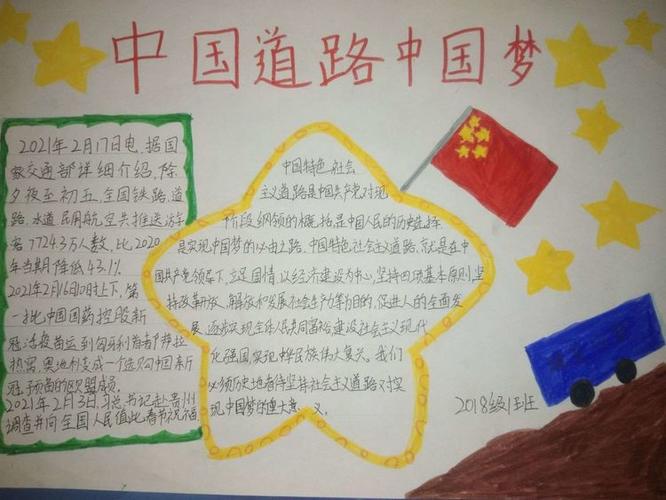 中国道路中国梦
2021年2月17日电,据国
家交通部详细介绍,除
夕夜至初五,全国铁路,道
路、水道、民用航空共推送游
客7724.3万人数,比2020
年当期降低43.1%
2021年2月16日10时上下,第
一批中国国药控股新
冠
利首者
热窝,奥地利变成一个选购中国新
冠
的欧盟成员。
2021年2月3日,习总书记赴贵州
调查并向全国人民值此春节祝福
中国特色社会
主义道路是中国共产党对现
阶段纲领的概括,是中国人民的历史选择
是实现中国梦的必由之路.中国特色社会主义道路,就是在中
国共产党领导下,立足国情,以经济建设为中心,坚持四项基本原则,坚
持改革开放、解放和发展社会生产力
目的,促进人的全面发
展,逐步实现全体人民共同富裕,建设社会主义现代
化强国实现
民族伟大复兴。我们
必须
坚持社会主义道路对实
现中国梦的重大意义。
2018级1班